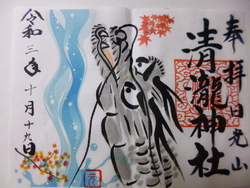 奉拝日光山
清瀧神社
令和三年十月十九日